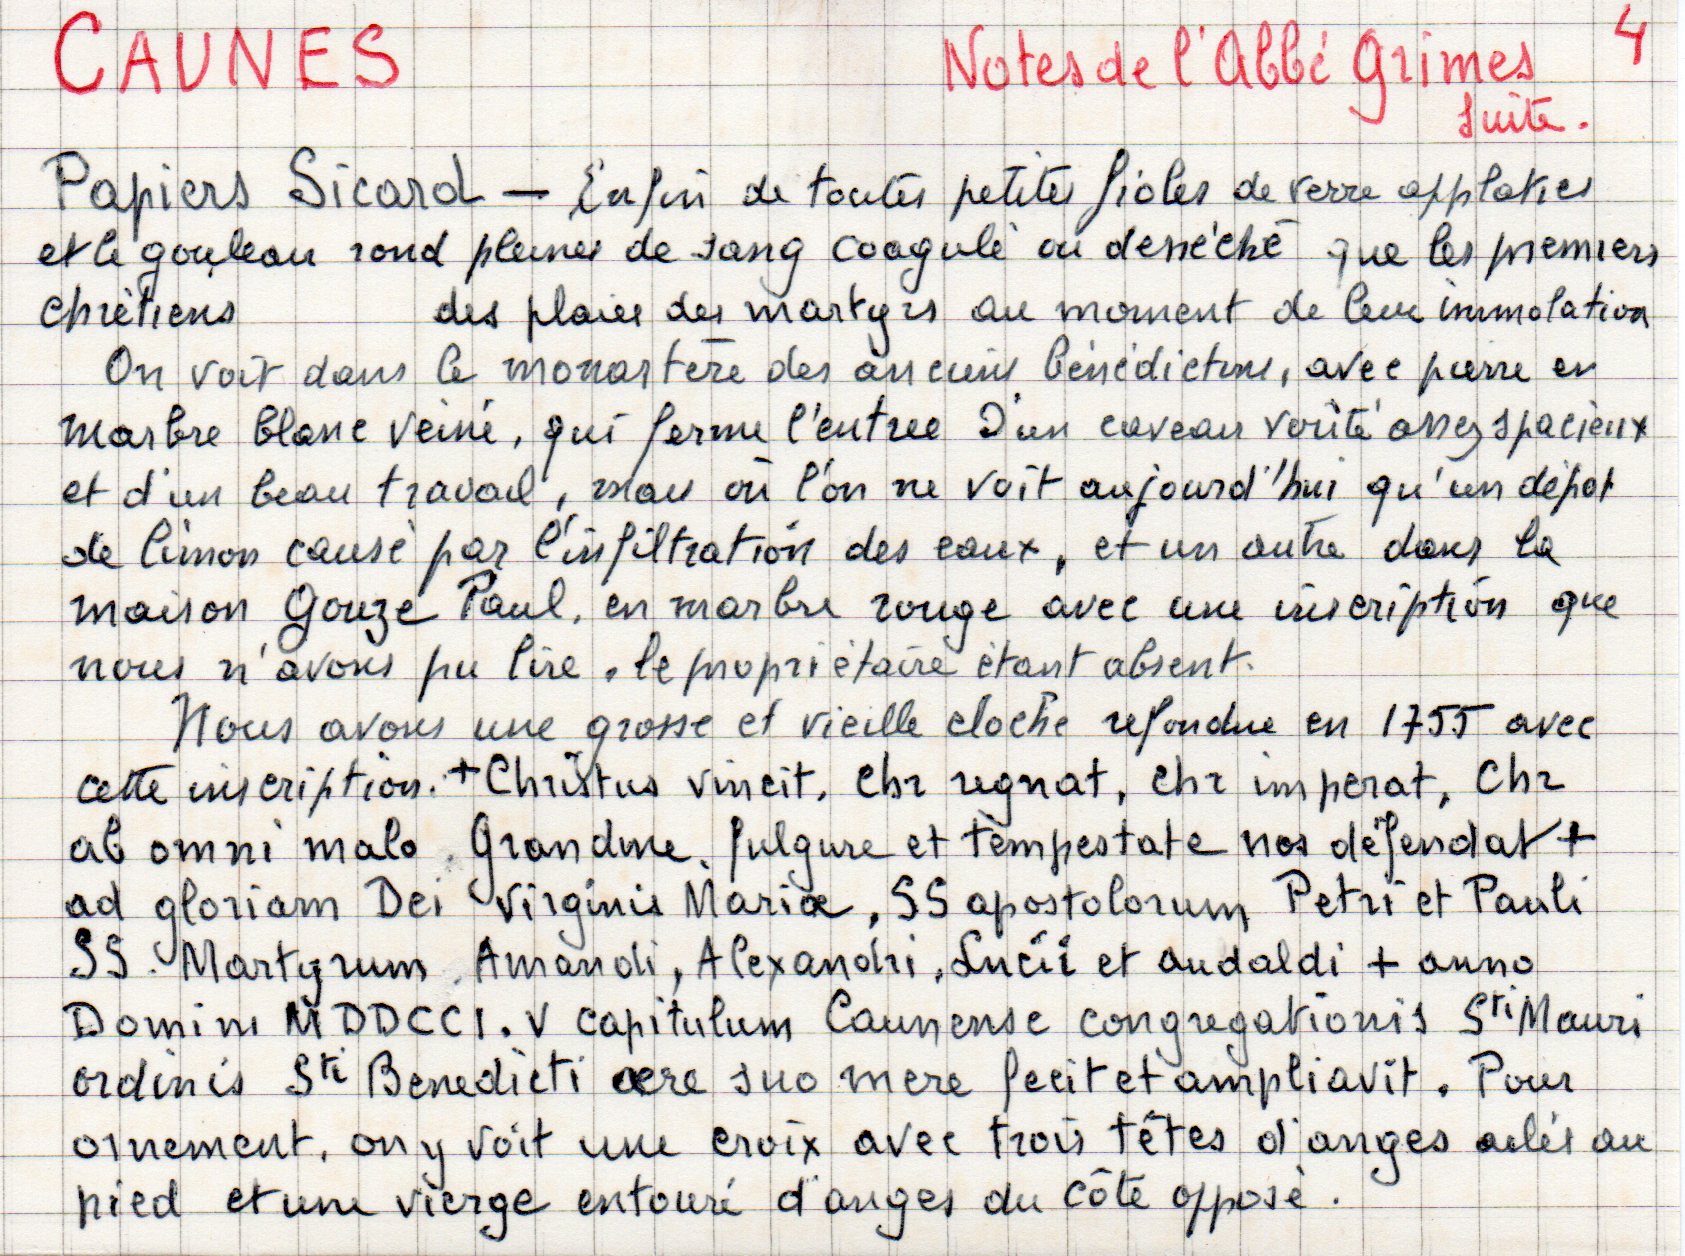 CAUNES
Notes de l'Abbé Grimes 4
suite.
Papiers Sicard — Enfin de toutes petites fioles de verre applaties
et le gouleau rond pleines de sang coagulé ou desséché que les premiers
chrétiens des plaies des martyrs au moment de leur immolation
On voit dans le monastère des anciens bénédictins, avec pierre en
marbre blanc veiné, qui ferme l'entree d'un caveau voûté assez spacieux
et d'un beau travail, mais où l'on ne voit aujourd'hui qu'un dépot
de limon causé par l'infiltration des eaux, et un autre dans la
maison Gouze Paul, en marbre rouge avec une inscription que
nous n'avons pu lire, le propriétaire étant absent.
Nous avons une grosse et vieille cloche refondue en 1755 avec
cette inscription. + Christus vincit, chr regnat, chr imperat, Chr
ab omni malo, Grandine, fulgure et tempestate nos défendat +
ad gloriam Dei Virginis Mariae, SS apostolorum Petri et Pauli
SS. Martyrum, Amandi, Alexandri, Lucii et audaldi + anno
Domini MDDCCI.V capitulum Caunense congregationis Sti Mauri
ordinis Sti Benedicti aere suo mere fecit et ampliavit. Pour
ornement, on y voit une croix avec trois têtes d'anges ailés au
pied et une vierge entouré d'anges du côté opposé.